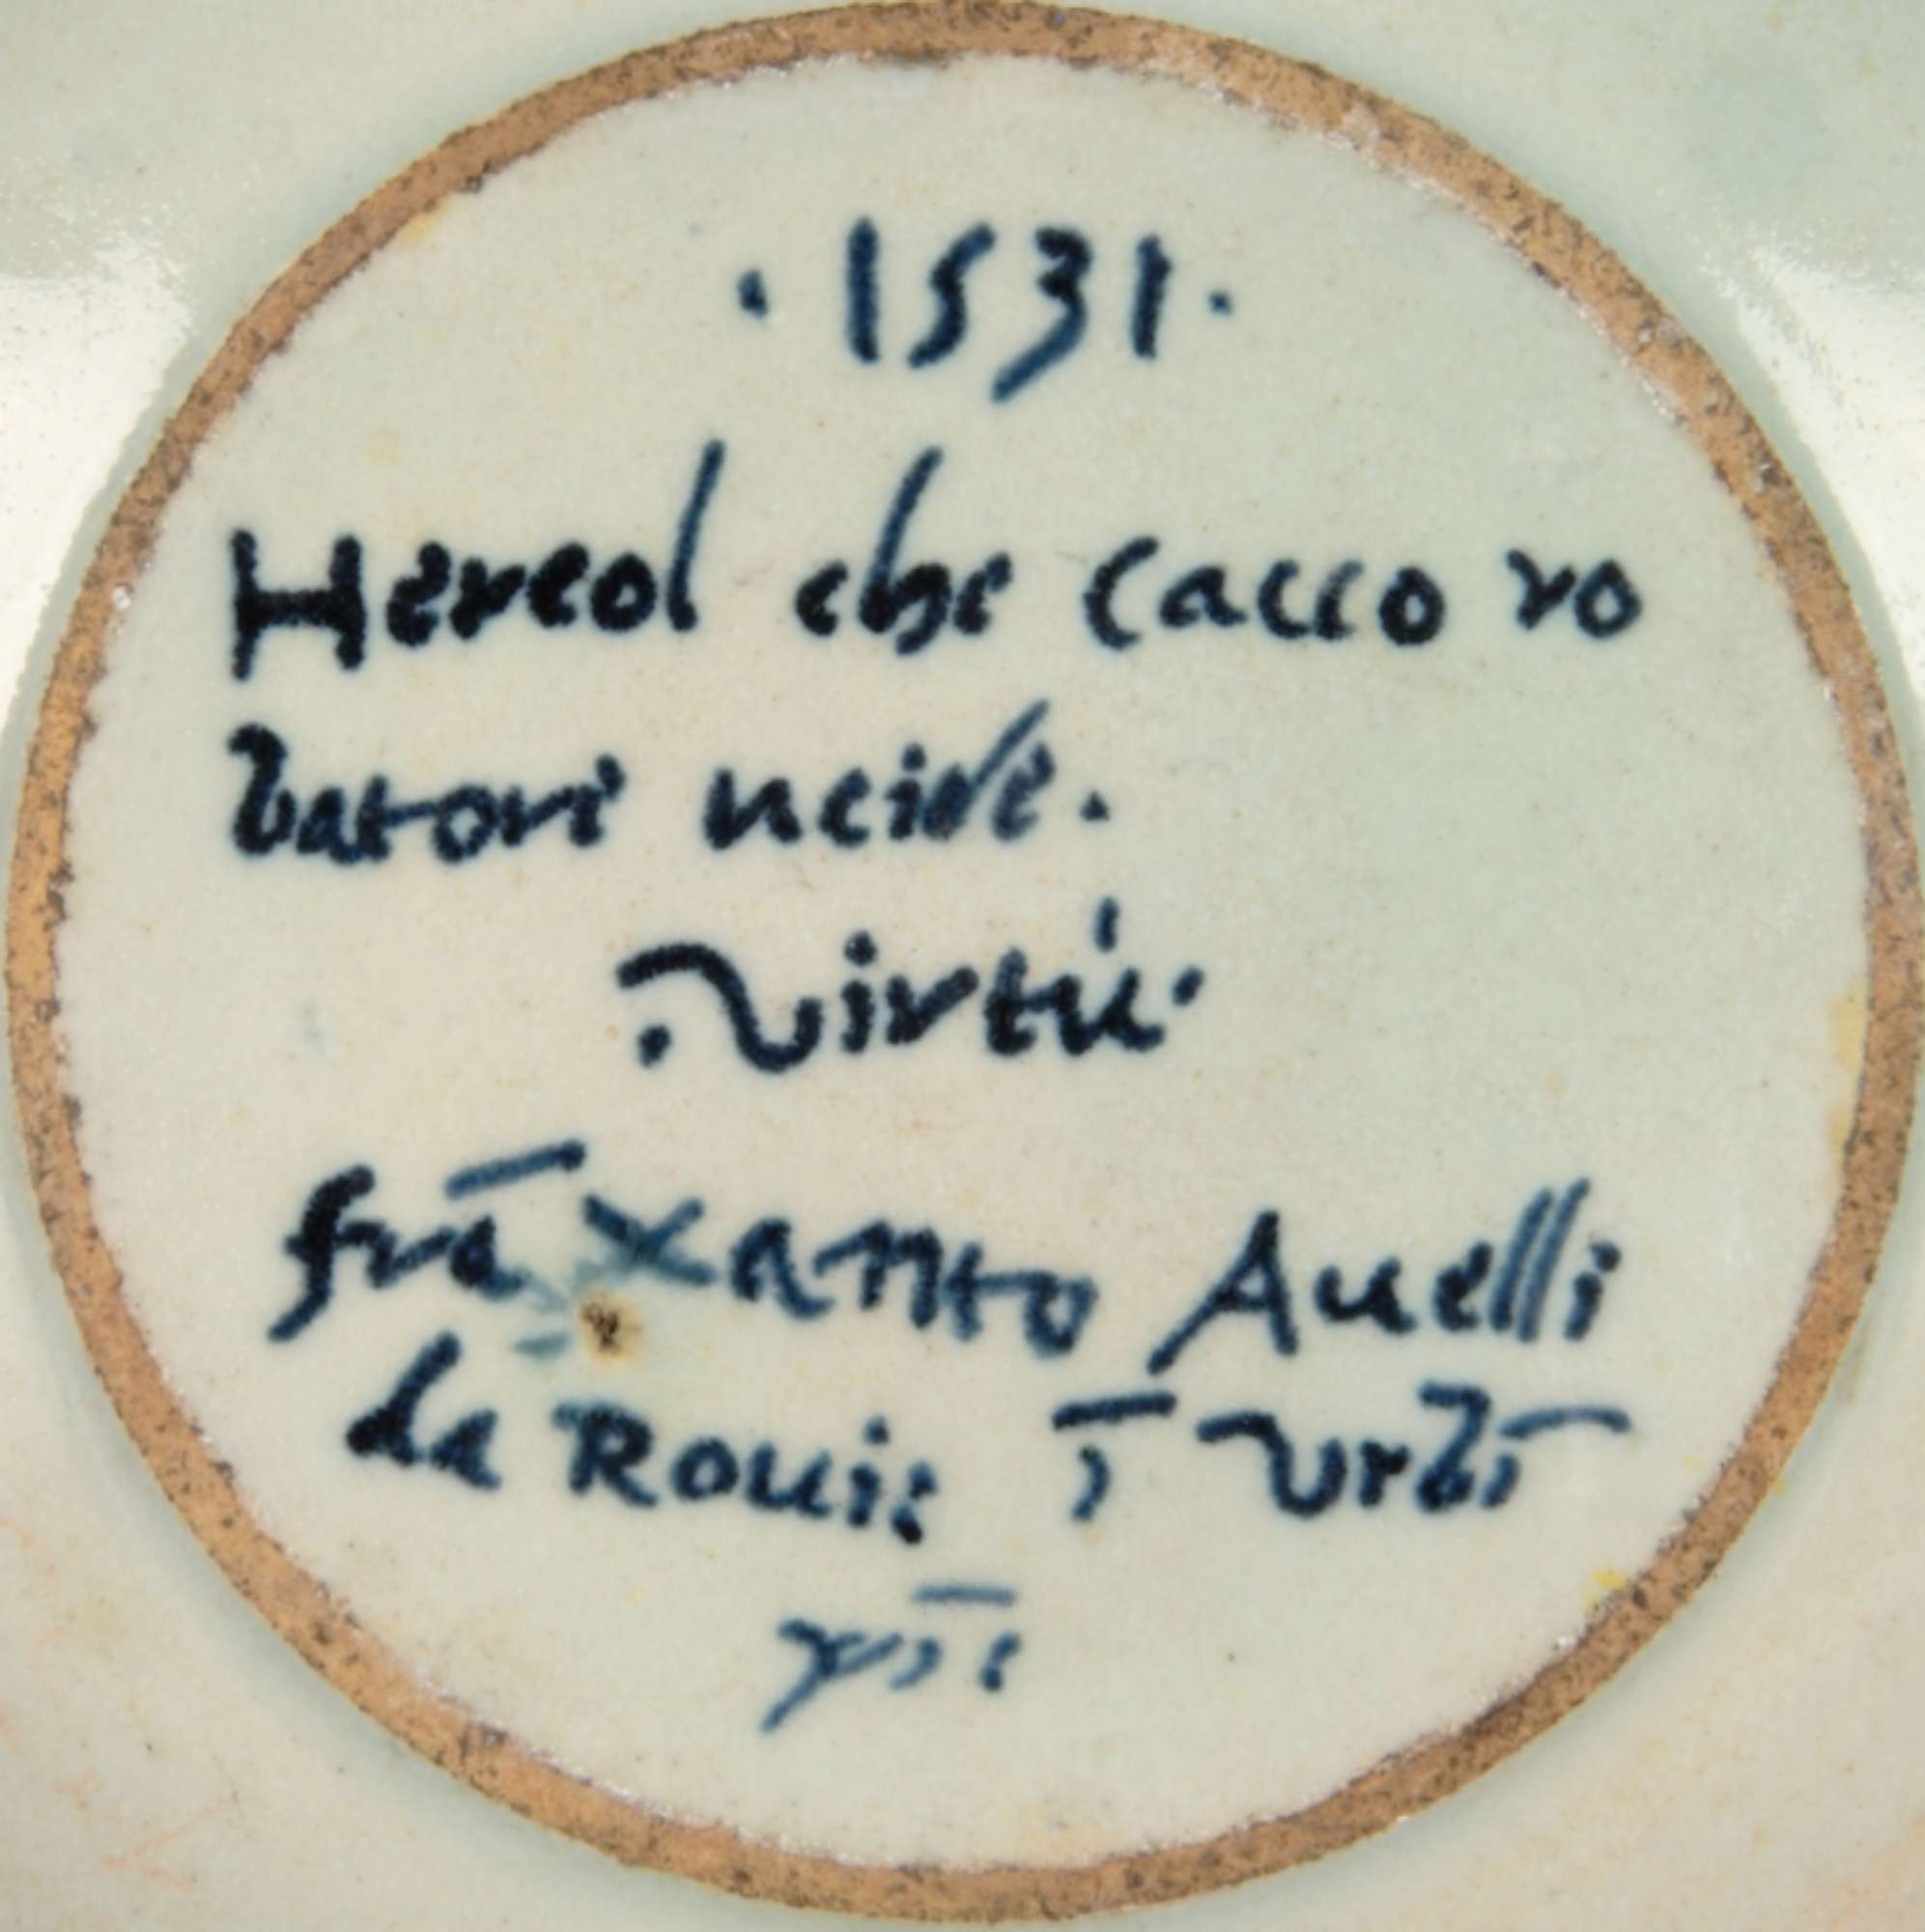 · 1531 ·
Hercol che Cacco ro
batore ucide .
. Virtù .
frā Xanto Auelli
da Rouić ī Urbī